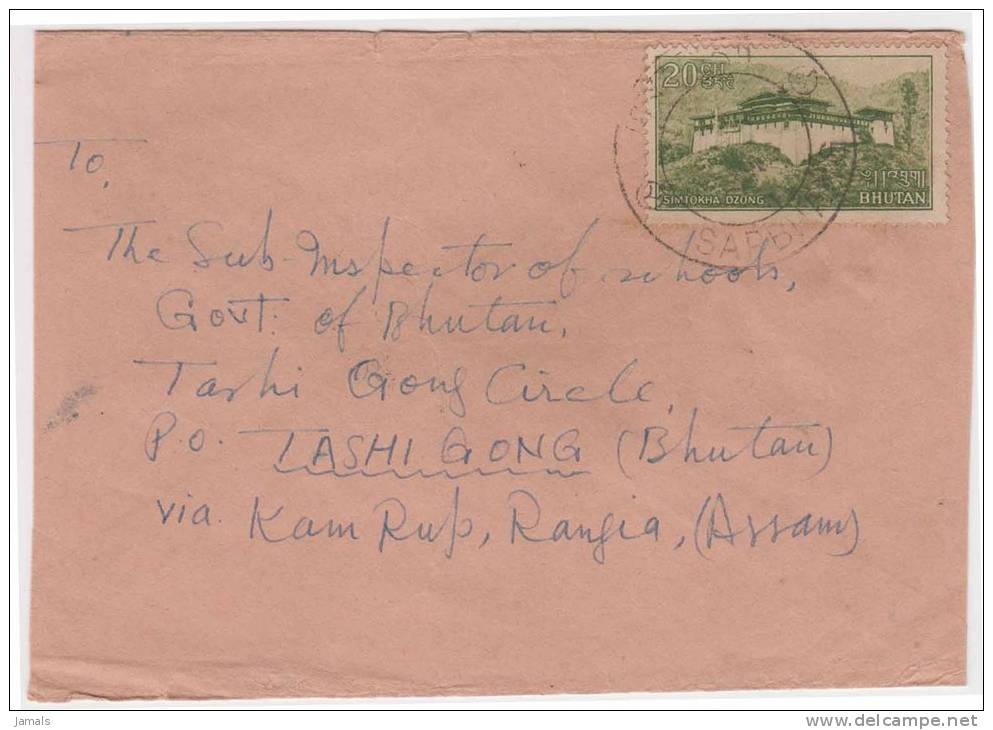 20 CH
SIMTOKHA DZONG
BHUTAN
SARBH
To,
The Sub-Inspector of schools,
Govt. of Bhutan,
Tashi Gong Circle,
P.O. TASHI GONG (Bhutan)
via Kam Rup, Rangia, (Assam)
Jamals
www.delcampe.net